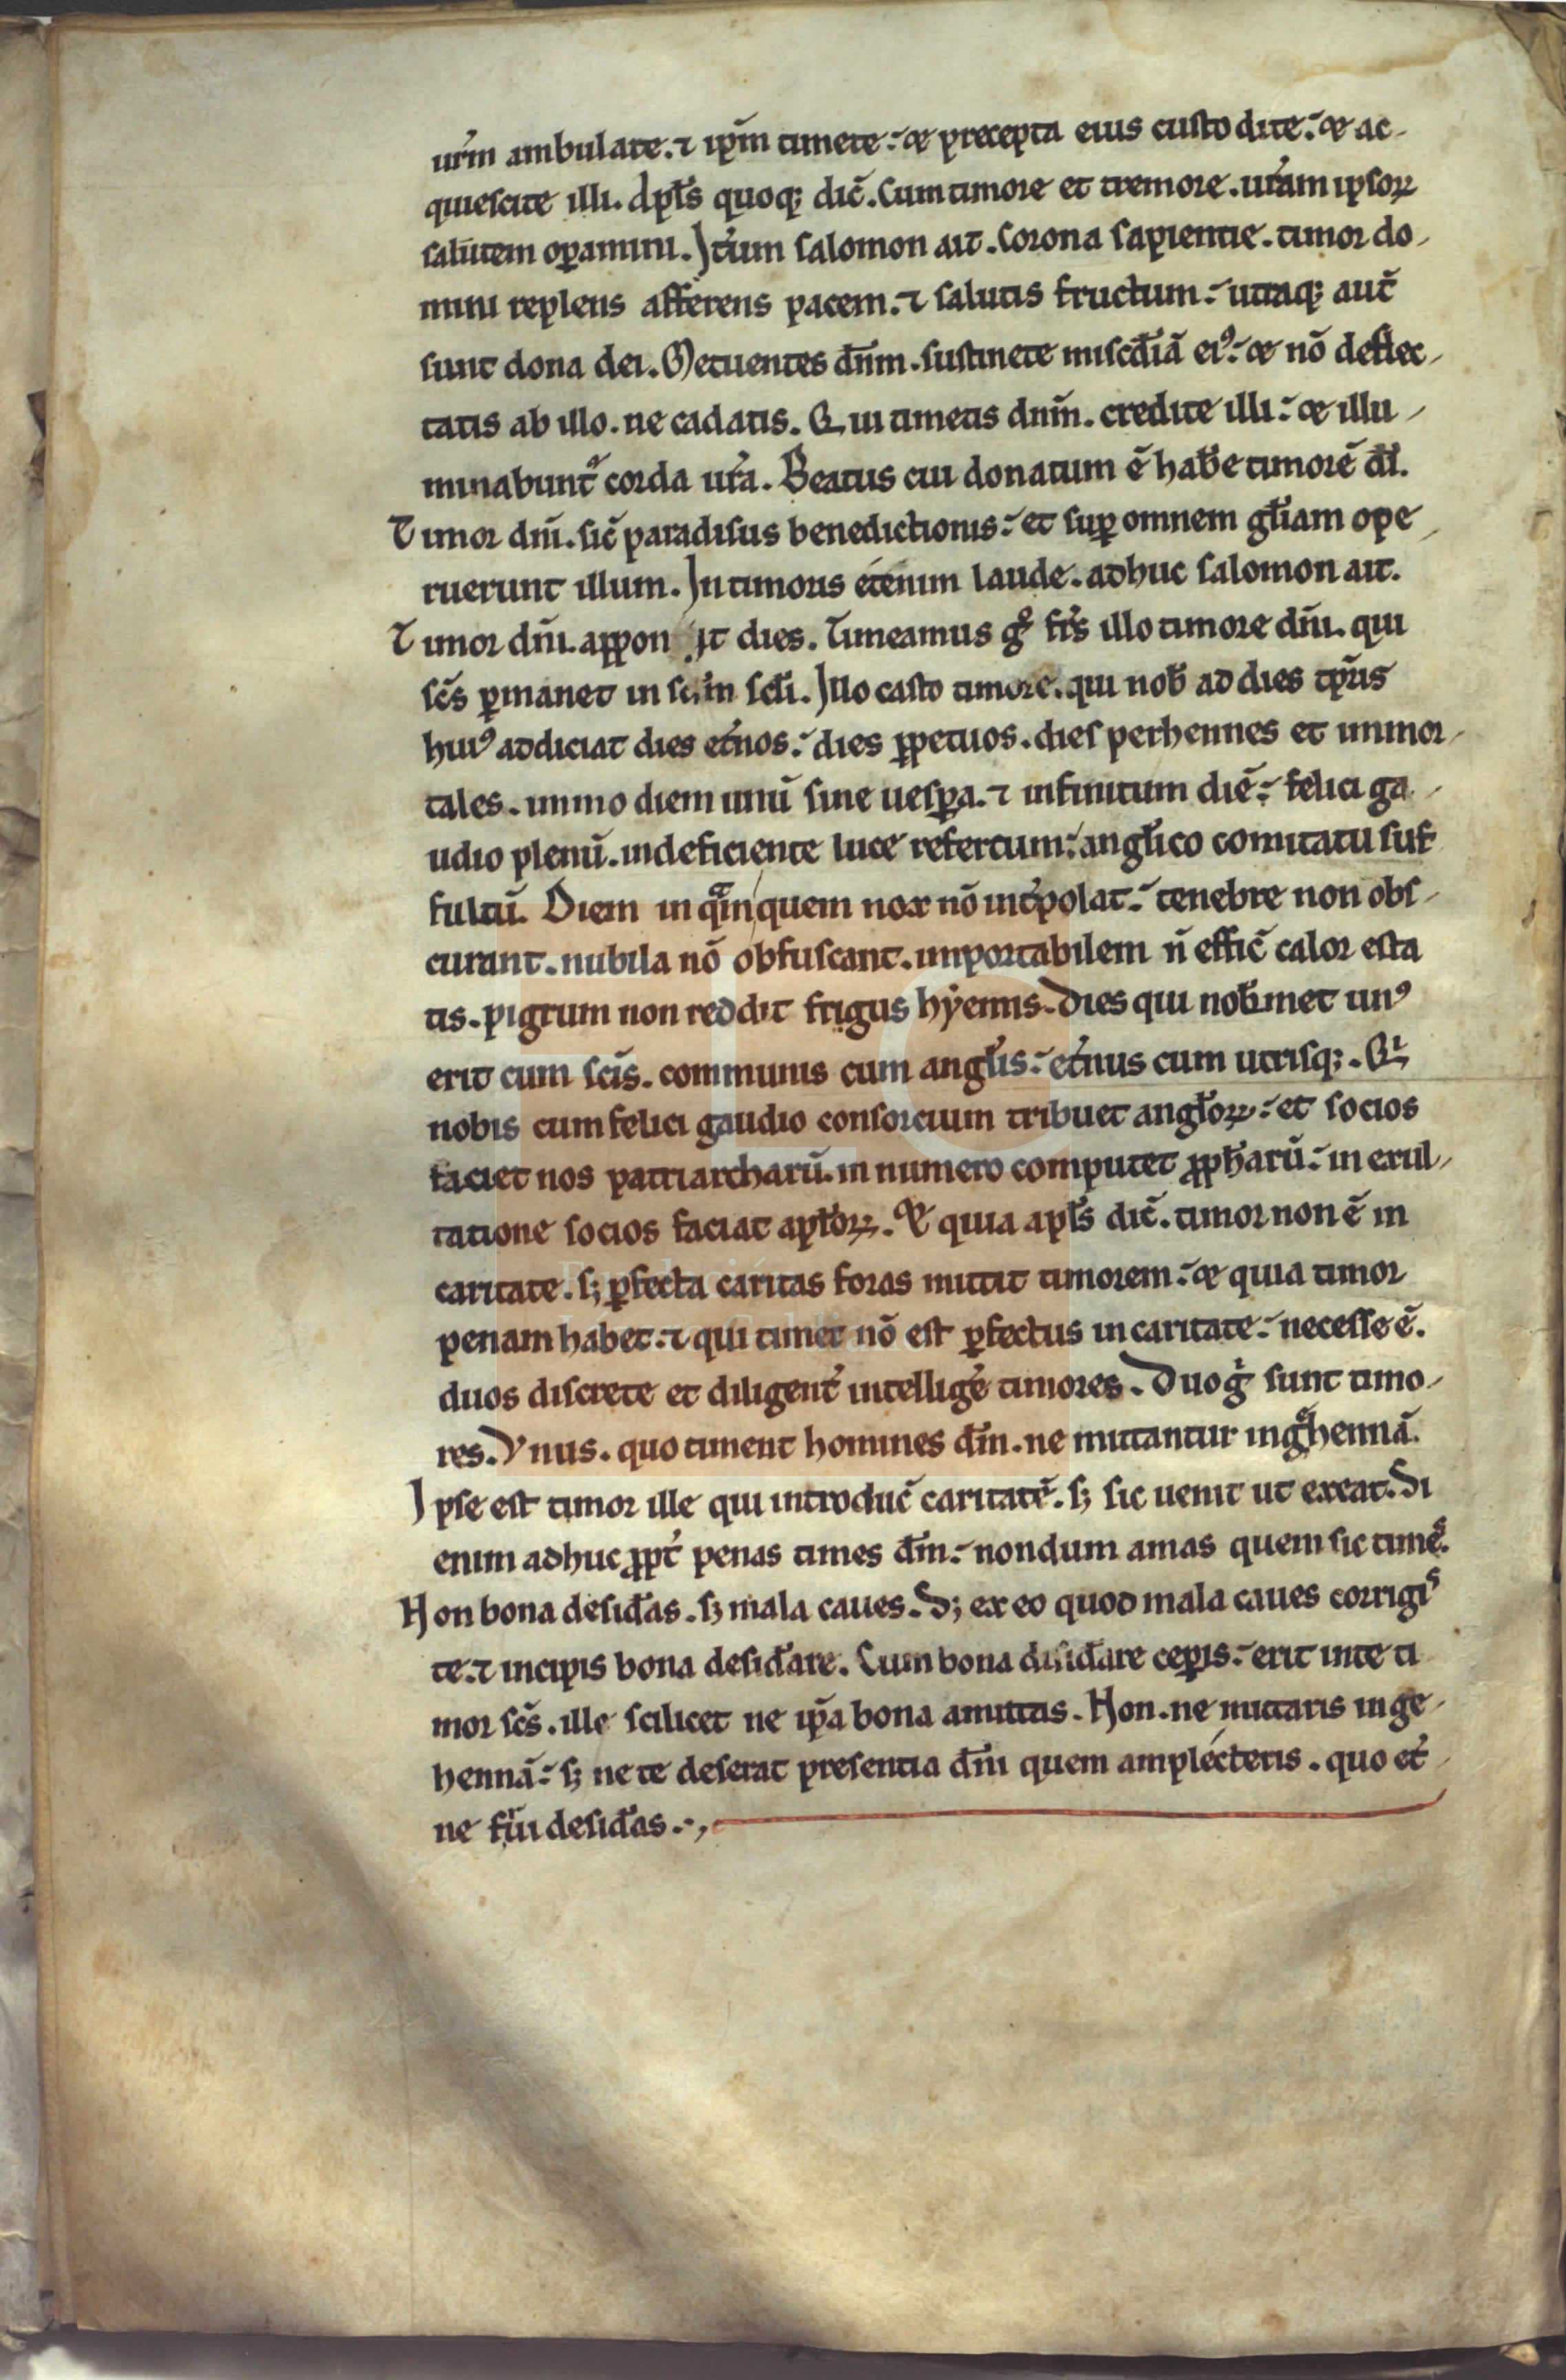 ur̄m ambulate. ⁊ ip̄m timete: & precepta eius custodite: & ac-
quiescite illi. Ap̄ls quoq; dic̄. Cum timore et tremore. ur̄am ipsoꝝ
salutem oꝑamini. It̄um salomon ait. Corona sapientie. timor do-
mini replens afferens pacem. ⁊ salutis fructum: utraq; aut̄
sunt dona dei. Metuentes dn̄m. sustinete misc̄diā eiꝰ: & nō deflec-
tatis ab illo. ne cadatis. Qui timetis dn̄m. credite illi: & illu-
minabunt᷑ corda ur̄a. Beatus cui donatum ē hab̄e timorē dī.
Timor dn̄i. sic̄ paradisus benedictionis: et suꝑ omnem gl̄iam ope-
ruerunt illum. In timoris etenim laude. adhuc salomon ait.
Timor dn̄i. appon it dies. Timeamus gͦ fr̄s illo timore dn̄i. qui
sc̄s ꝑmanet in sc̄lm sc̄li. Illo casto timore. qui nob̄ ad dies tp̄ris
huiꝰ addiciat dies et̄nos: dies ꝑpetuos. dies perhennes et inmor-
tales. immo diem unū sine uesꝑa. ⁊ infinitum diē: felici ga-
udio plenū. indeficiente luce refertum: angl̄ico comitatu suf-
fultū. Diem inqᵃm quem nox nō int̄polat: tenebre non obs-
curant. nubila nō obfuscant. importabilem n̄ effic̄ calor esta
tis. pigrum non reddit frigus hyemis. Dies qui nob̄met unꝰ
erit cum sc̄is. communis cum angl̄is: et̄nus cum utrisq;. Qⁱ
nobis cum felici gaudio consorcium tribuet angl̄oꝝ: et socios
faciet nos patriarcharū. in numero computet ꝓph̄arū: in exul-
tatione socios faciat apl̄oꝝ. & quia apl̄s dic̄. timor non ē in
caritate. s; ꝑfecta caritas foras mittit timorem: & quia timor
penam habet. ⁊ qui timet nō est ꝑfectus in caritate: necesse ē.
duos discrete et diligent̄ intelliḡe timores. Duo gͥ sunt timo-
res. Vnus. quo timent homines dm̄. ne mittantur in gᵉhennā.
Ipse est timor ille qui introduc̄ caritatē. s; sic uenit ut exeat. Si
enim adhuc ꝓpt̄ penas times dm̄: nondum amas quem sic timeˢ.
Non bona desid̄as. s; mala caues. S; ex eo quod mala caues corrigiˢ
te. ⁊ incipis bona desid̄are. Cum bona disid̄are ceꝑis: erit in te ti
mor sc̄s. ille scilicet ne ip̄a bona amittas. Non. ne mittaris in ge-
hennā: s; ne te deserat presentia dn̄i quem amplecteris. quo et̄-
ne fͬui desid̄as.